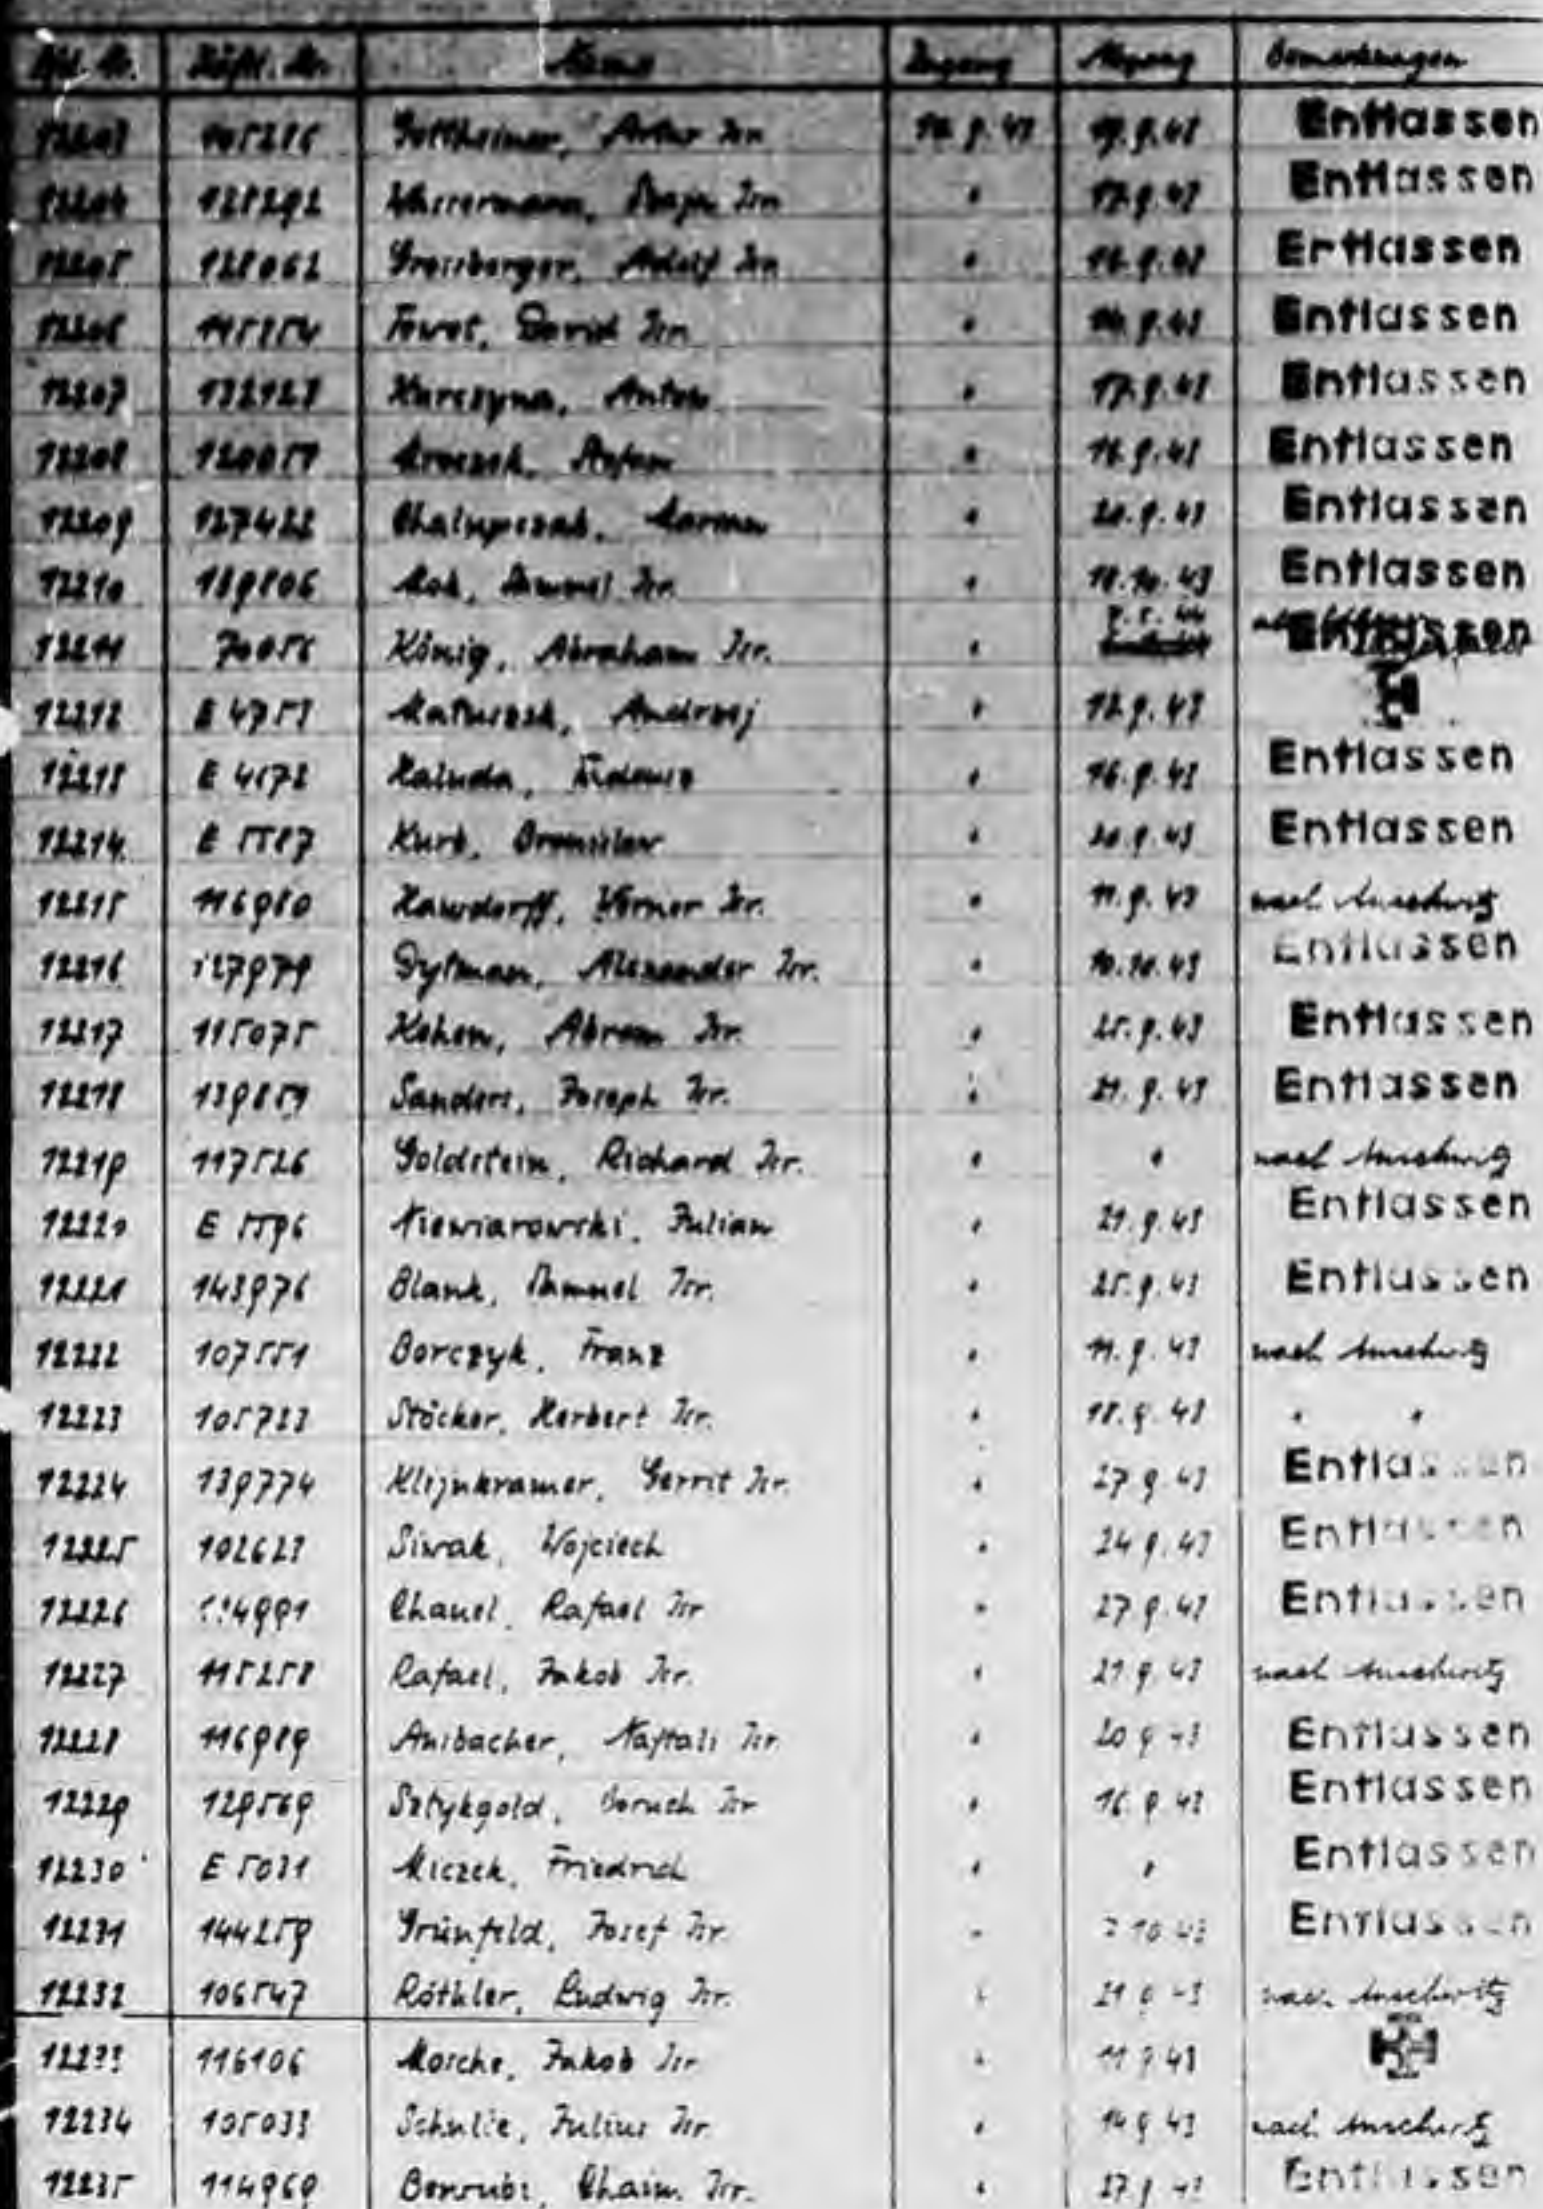 Lfd. Nr. Häftl. Nr. Name Zugang Abgang Bemerkungen
12203 Gottheimer, Artur Isr. 10.9.43 19.9.43 Entlassen
12204 128292 Wassermann, Isr. " 17.9.43 Entlassen
12205 128062 Grossberger, Adolf Isr. " 16.9.43 Entlassen
12206 Fewet, David Isr. " Entlassen
12207 132123 Kurczyna, Anton " 17.9.43 Entlassen
12208 Mroczek, Stefan " 16.9.43 Entlassen
12209 127422 Chalupczak, " 20.9.43 Entlassen
12210 139806 Mok, Sammel Isr. " 18.10.43 Entlassen
12211 70056 König, Abraham Isr. " 7.5.44 Entlassen
12212 E 4753 Matuszek, Andrzej " 12.9.43
12213 E 4172 Kaluda, " 16.9.43 Entlassen
12214 E 5587 Kurb, Bronislaw " 20.9.43 Entlassen
12215 116980 Hawdorff, Werner Isr. " 11.9.43 nach Auschwitz
12216 127979 Dytman, Alexander Isr. " 10.10.43 Entlassen
12217 115075 Kohen, Abram Isr. " 25.9.43 Entlassen
12218 139859 Sanders, Joseph Isr. " 21.9.43 Entlassen
12219 117526 Goldstein, Richard Isr. " " nach Auschwitz
12220 E 5596 Niewiarowski, Julian " 21.9.43 Entlassen
12221 143976 Blank, Samuel Isr. " 25.9.43 Entlassen
12222 107551 Borczyk, Franz " 11.9.43 nach Auschwitz
12223 105733 Stöcker, Herbert Isr. " 18.9.43 " "
12224 139774 Klijnkramer, Gerrit Isr. " 27.9.43 Entlassen
12225 102623 Siwak, Wojciech " 24.9.43 Entlassen
12226 Chauel, Rafael Isr. " 27.9.43 Entlassen
12227 115258 Rafael, Jakob Isr. " 21.9.43 nach Auschwitz
12228 116989 Ansbacher, Naftali Isr. " 20.9.43 Entlassen
12229 129569 Sztykgold, Boruch Isr. " 16.9.43 Entlassen
12230 E 5031 Miczek, Friedrich " " Entlassen
12231 144259 Grünfeld, Josef Isr. " Entlassen
12232 106547 Röthler, Ludwig Isr. " 21.9.43 nach Auschwitz
12233 116106 Mosche, Jakob Isr. " 11.9.43
12234 105033 Schulie, Julius Isr. " 14.9.43 nach Auschwitz
12235 114969 Benrubi, Chaim Isr. " 27.9.43 Entlassen